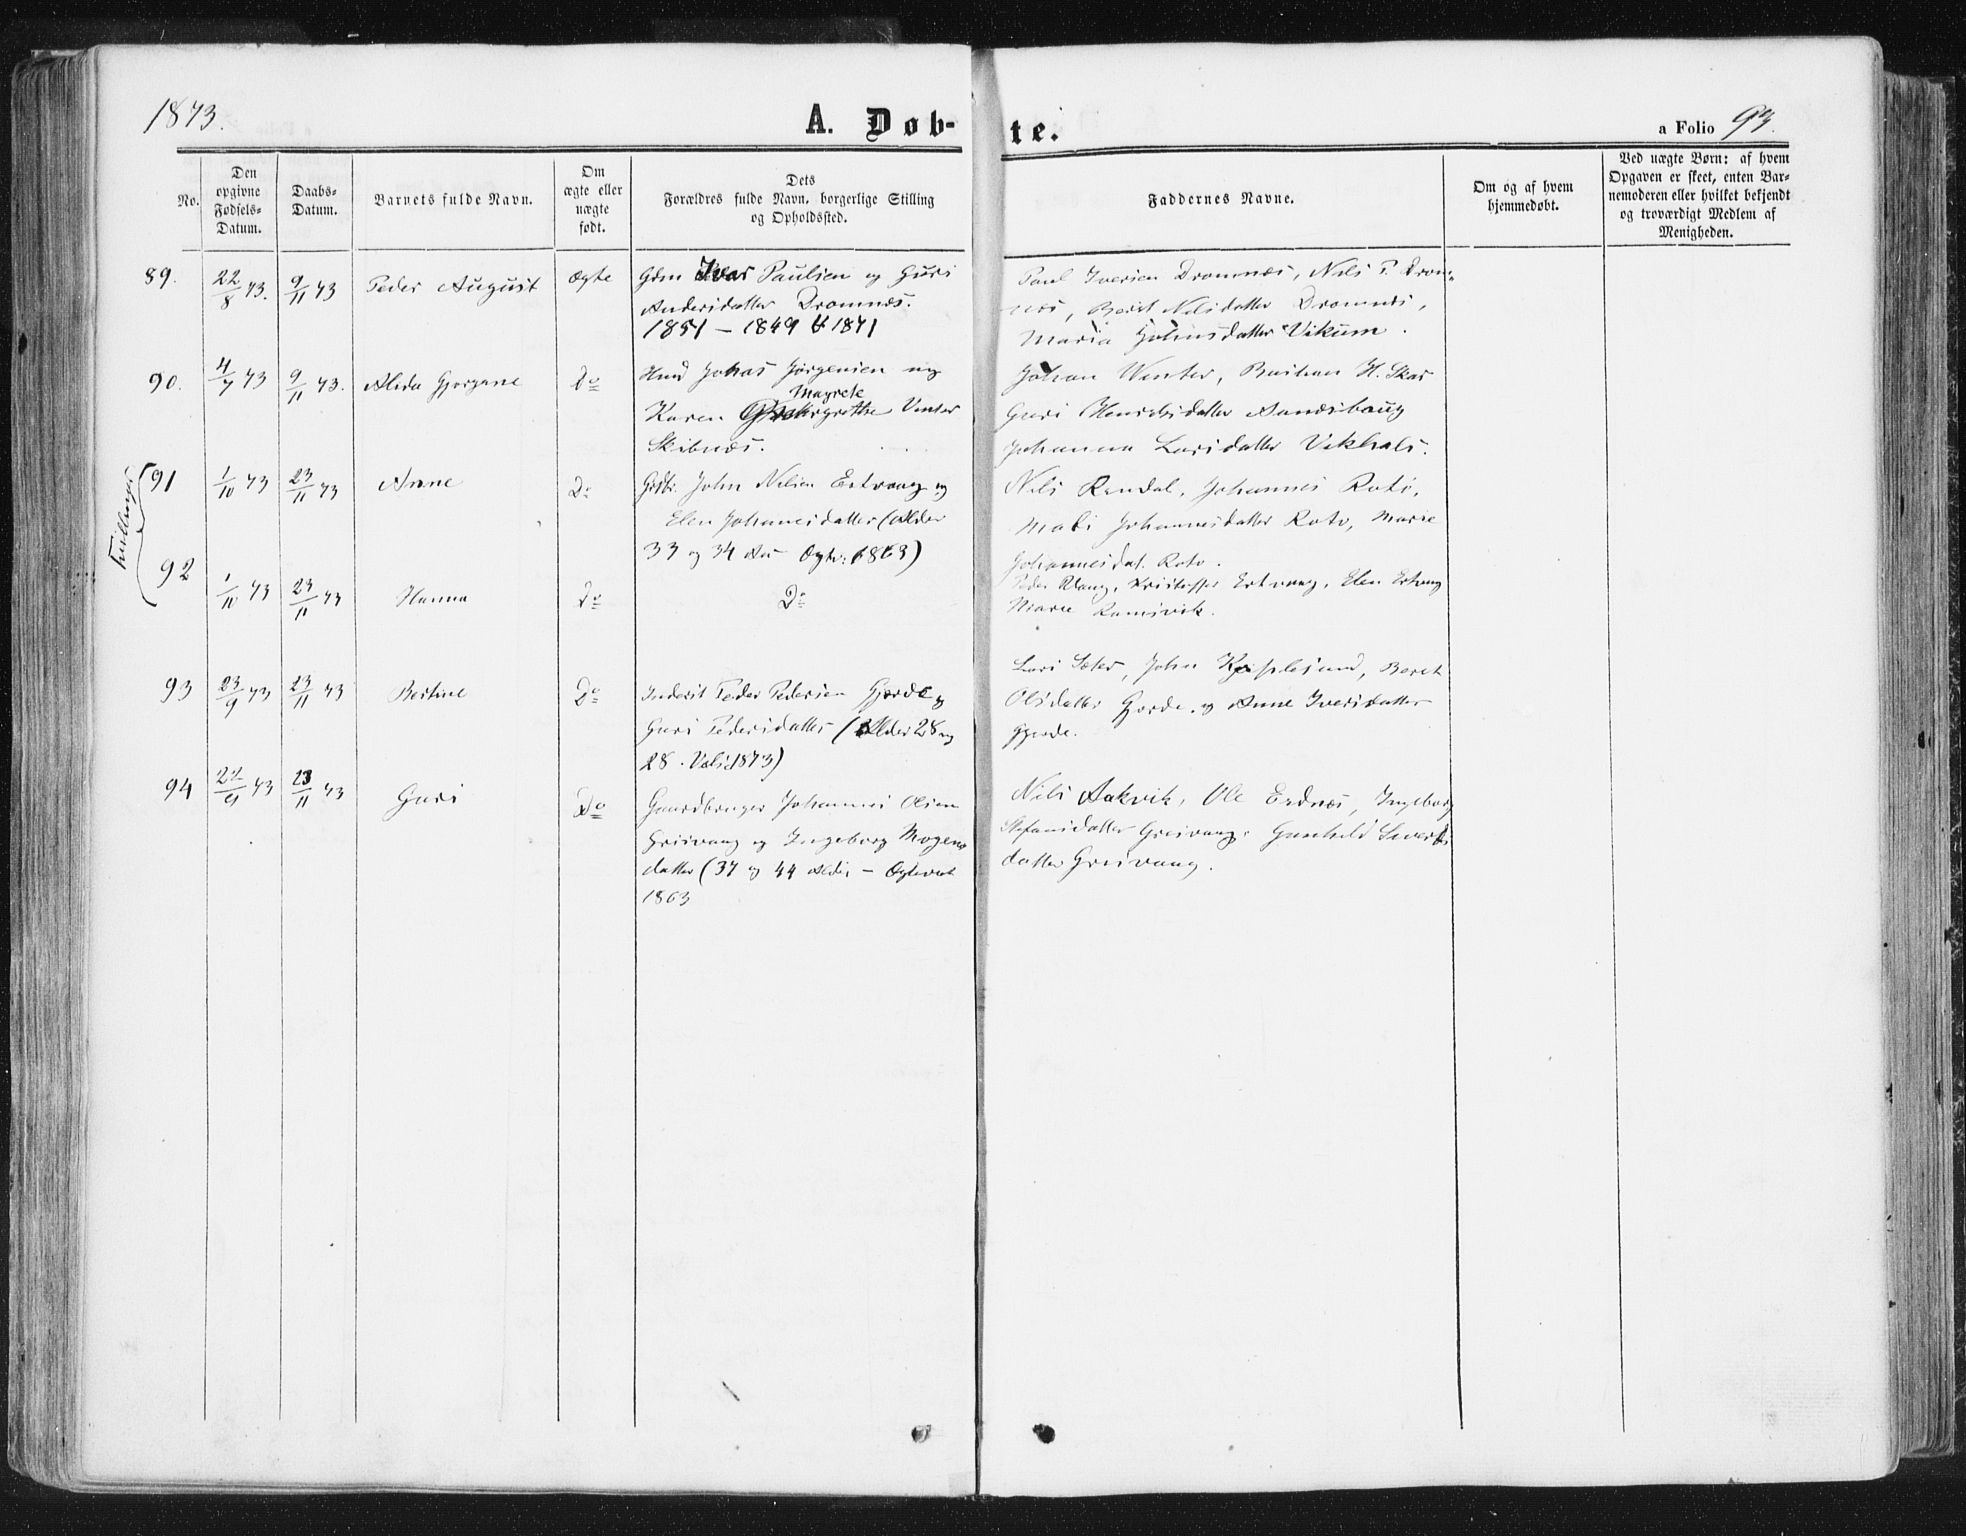 1873.
A. Døb-
te.
a Folio 93.
No.
Den opgivne Fødsels-Datum.
Daabs-Datum.
Barnets fulde Navn.
Om ægte eller uægte født.
Dets Forældres fulde Navn, borgerlige Stilling og Opholdssted.
Faddernes Navne.
Om og af hvem hjemmedøbt.
Ved uægte Børn: af hvem Opgaven er skeet, enten Barnemoderen eller hvilket bekjendt og troværdigt Medlem af Menigheden.
89. 22/8 73. 9/11 73 Peder August Ægte Gdm Ivar Paulsen og Guri
Andersdatter Dromnæs.
1851 – 1849 1871
Paul Iversen Dromnæs, Nils P. Drom-
næs, Berit Nilsdatter Dromnæs,
Maria Johnsdatter Vikum.
90. 4/7 73 9/11 73. Alida Gjorgane Do Hmd Johas Jørgensen og
Karen Magrete Venter
Skibnæs.
Johan Winter, H. Skar
Guri Henriksdatter
Johanna Larsdatter Vikhals.
Tvillinger
91 1/10 73 23/11 73 Anne Do Gdbr. John Nilsen Ertvaag og
Elen Johanesdatter (Alder
33 og 34 Aar Ægtev: 1863)
Nils Rendal, Johannes Rotø,
Mali Johannesdatter Roto, Marie
Johannesdat. Roto.
92 1/10 73 23/11 73 Hanna Do Do
Peder Vaag, Kristoffer Ertvaag, Elen Ertvaag
Marie Ramsvik.
93 23/9 73 23/11 73 Bertine Do Inderst Peder Pedersen Gjerde og
Guri Pedersdatter (Alder 28 og
28. Viet 1873)
Lars Sæter, John , Beret
Olsdatter Gjerde og Anne Iversdatter
Gjerde.
94 22/9 73 23/11 73 Guri Do Gaardbruger Johannes Olsen
Greivaag og Ingeborg Mogens
datter (37 og 44 Alder – Ægteviet
1863
Nils Aakvik, Ole Ednæs, Ingeborg
Stefansdatter Greivaag, Gunhild Sivert
datter Greivaag.